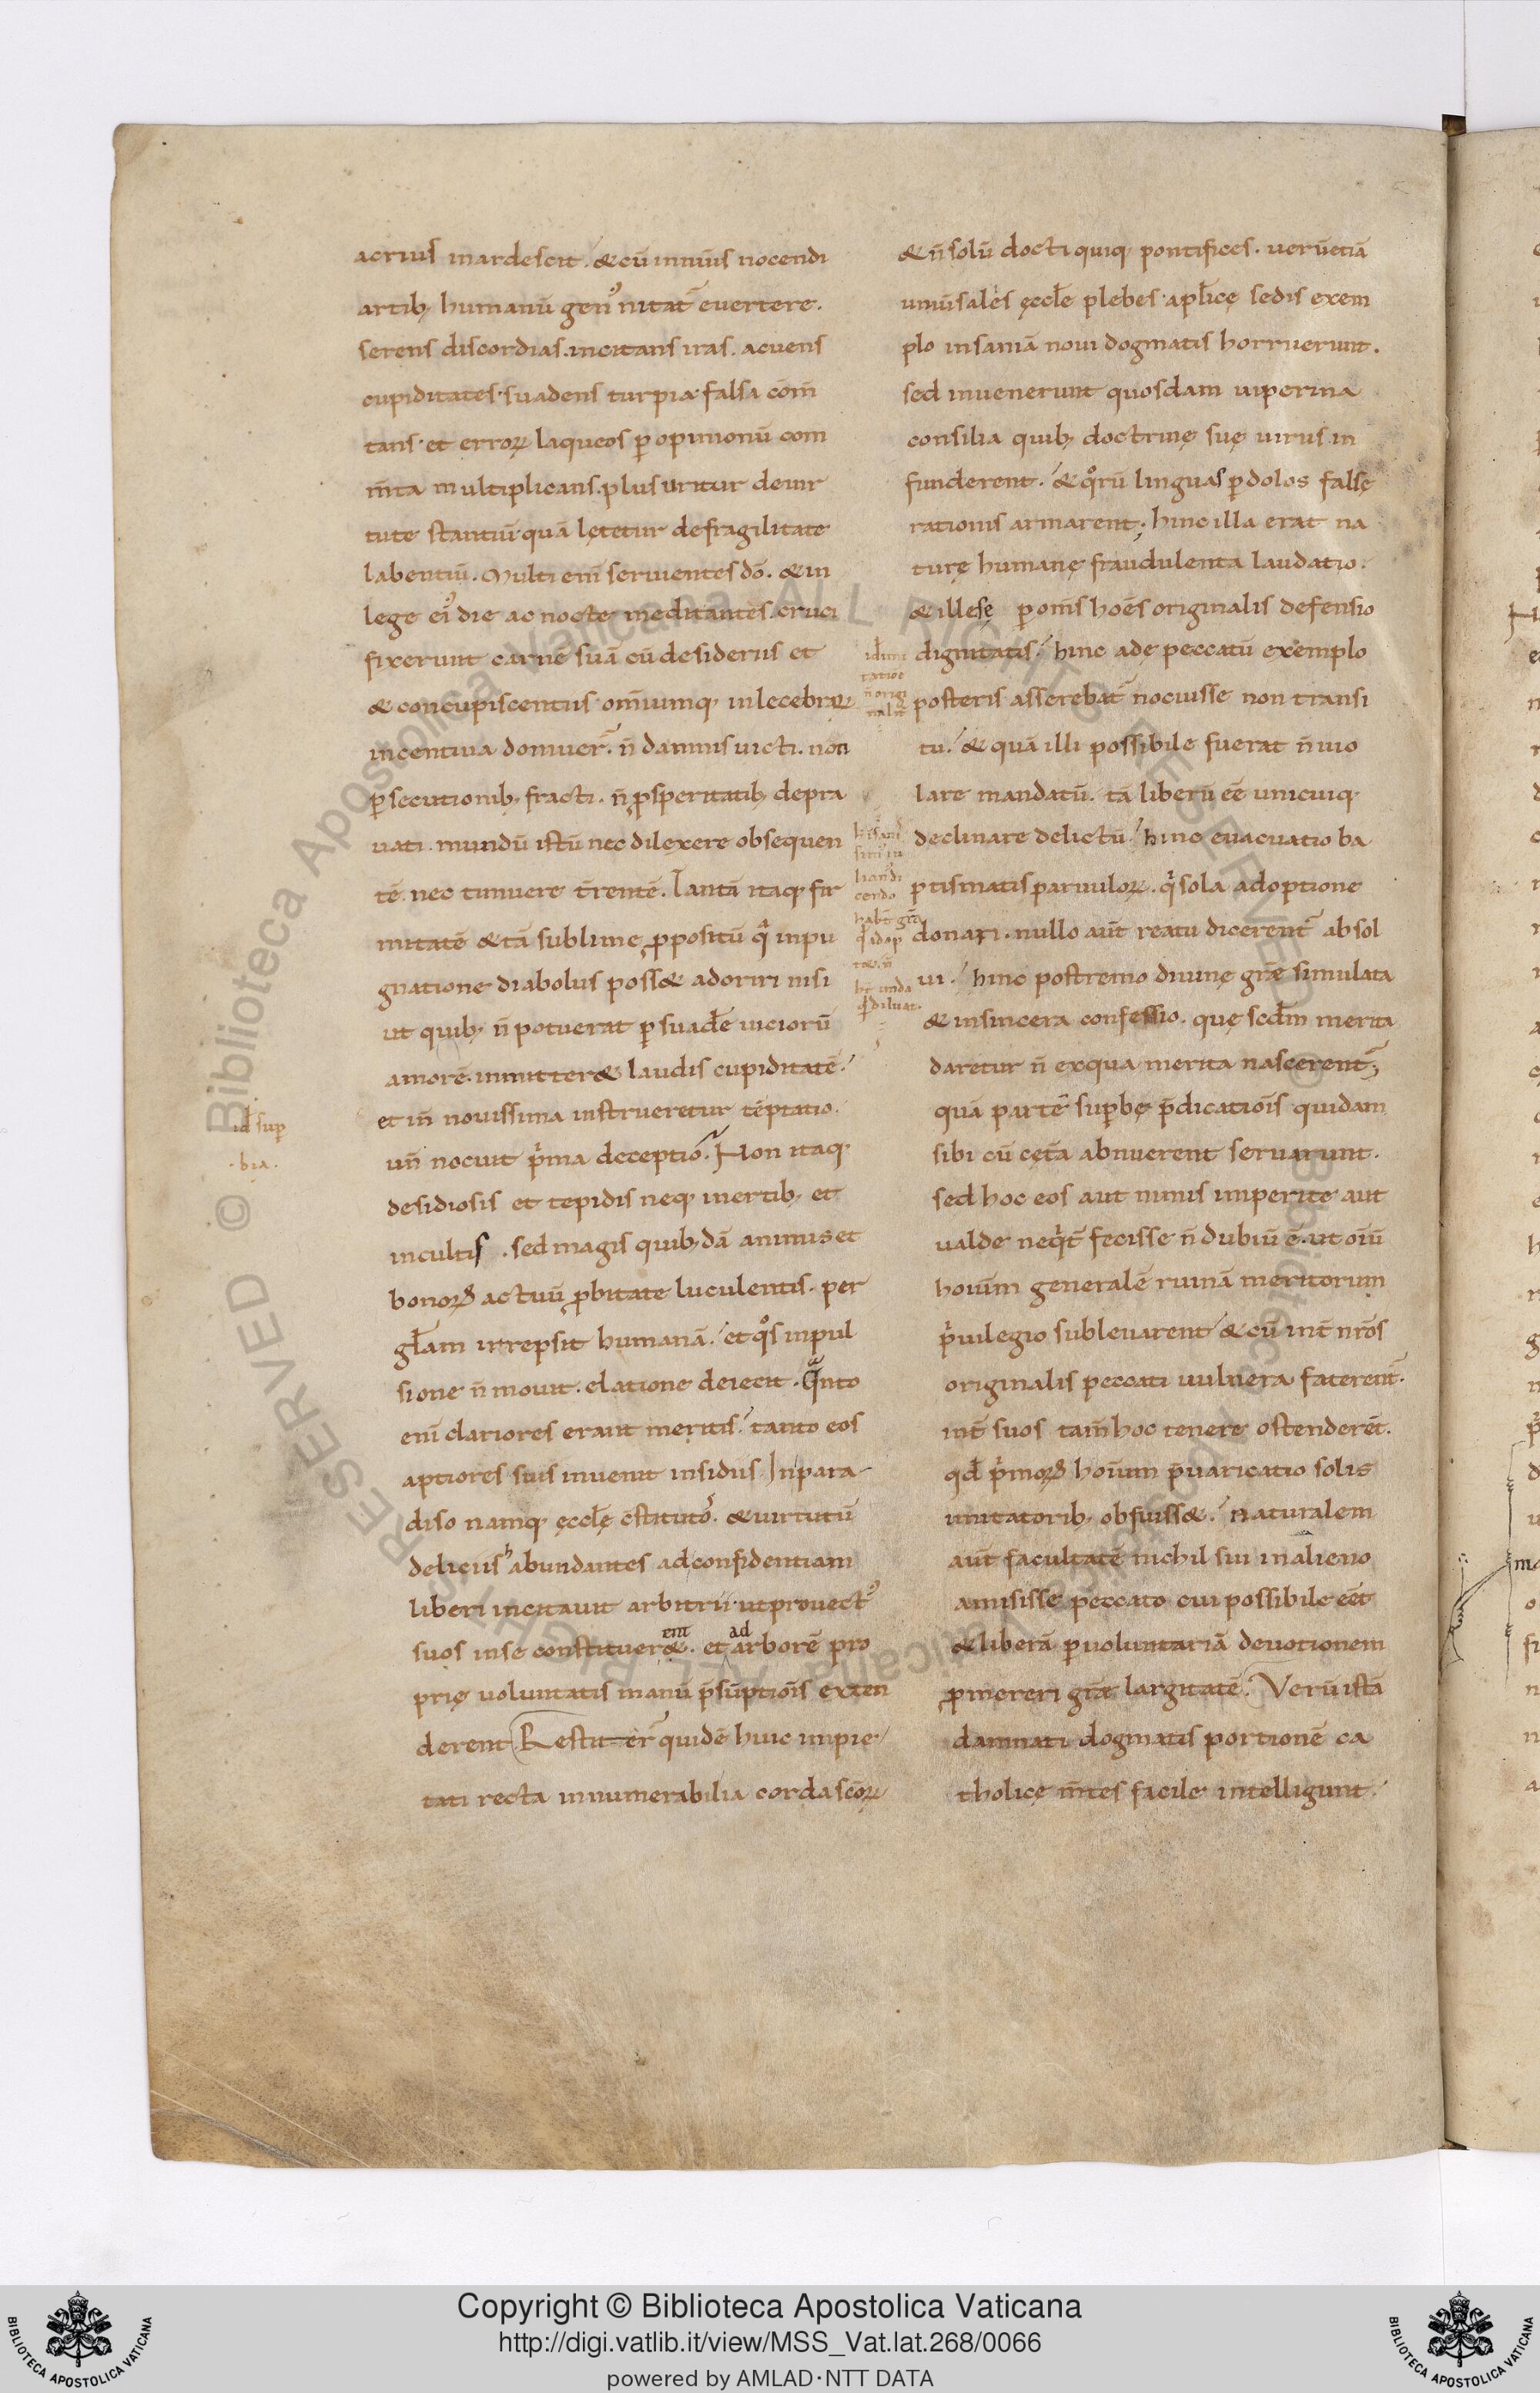 acrius inardescit. & cū innūis nocendi
artib; humanū gen᾽ nitat᷑ euertere.
serens discordias. incitans iras. acuens
cupiditates. suadens turpia. falsa com̄
tans. et erroꝝ laqueos ꝑ opinionū com
m̄ta multiplicans. plus uritur deuir
tute stantiū. quā lętetur defragilitate
labentiū. Multi eni᷑ seruientes dō. & in
lege ei᾽ die ac nocte meditantes. cruci
fixerunt carnē suā cū desideriis et
& concupiscentiis. om̄iumq; inlecebraꝝ
incentiua domuer᷑. n̄ damnis uicti. non
ꝑsecutionib; fracti. n̄ ꝓsperitatib; depra
uati. mundū istū nec dilexere obsequen
tē. nec timuere t᷑rentē. Tantā itaq; fir
mitatē & tā sublime ꝓpositū qͣ inpu
gnatione diabolus poss& adoriri nisi
ut quib; n̄ potuerat ꝑsuade᷑ uiciorū
amorē. inmitter& laudis cupiditatē.
et in̄ nouissima instrueretur tēptatio.
un̄ nocuit pͥma deceptio. Non itaq;
desidiosis et tepidis neq; inertib; et
incultis. sed magis quib;dā animis et
bonoꝝ actuū ꝓbitate luculentis. per
gl̄am irrepsit humanā. et qͦs inpul
sione n̄ mouit. elatione deiecit. Qͣnto
eni᷑ clariores erant meritis. tanto eos
aptiores suis inuenit insidiis. Inpara
diso namq; ęccl̄ę c̄stitutos. & uirtutū
deliciis habundantes adconfidentiam
liberi incitauit arbitrii. utprouect᾽
suos inse constituer& ent. et ad arborē pro
prię uoluntatis manū p̄sūptiōis exten
derent. Restiter᷑ quidē huic impie
tati recta innumerabilia corda sc̄oꝝ
id̄ sup
bia.
& n̄ solū docti quiq; pontifices. uerūetiā
uniūsales ęccl̄e plebes apl̄icę sedis exem
plo insaniā noui dogmatis horruerunt.
sed inuenerunt quosdam uiperina
consilia quib; doctrinę suę uirus in
funderent. & qͦrū linguas ꝑdolos falsę
rationis armarent; hinc illa erat na
turę humanę fraudulenta laudatio.
& illesę ꝑ om̄s hoēs originalis defensio
dignitatis. hinc adę peccatū exemplo
posteris asserebat᷑ nocuisse non transi
tu. & quā illi possibile fuerat n̄ uio
lare mandatū. tā liberū eē unicuiq;
declinare delictū. hinc euacuatio ba
ptismatis paruuloꝝ. qͥ sola adoptione
donari. nullo aūt reatu dicerent᷑ absol
ui. hinc postremo diuinę grāę simulata
& insincera confessio. quę scd̄m merita
daretur n̄ exqua merita nascerent᷑;
quā partē sup̱bę p̄dicatiōis quidam
sibi cū cęt᷑a abnuerent seruarunt.
sed hoc eos aut nimis imperite aut
ualde neqͥt᷑ fecisse n̄ dubiū ē. ut oīū
hoiūm generalē ruinā meritorum
pͥuilegio subleuarent & cū int᷑ nr̄os
originalis peccati uulnera faterent᷑.
int᷑ suos tam̄ hoc tenere ostenderēt.
qd̄ pͥmoꝝ hoiūm p̄uaricatio solis
imitatorib; obfuiss&. naturalem
aūt facultatē nichil sui inalieno
amisisse peccato cui possibile eēt
& liberā ꝑ uoluntariā deuotionem
ꝓmereri grāę largitatē. Verū istā
damnati dogmatis portionē ca
tholicę m̄tes facile intelligunt.
Copyright © Biblioteca Apostolica Vaticana
http://digi.vatlib.it/view/MSS_Vat.lat.268/0066
powered by AMLAD·NTT DATA
BIBLIOTECA APOSTOLICA VATICANA
BIBLIOTECA APOSTOLICA VATICANA